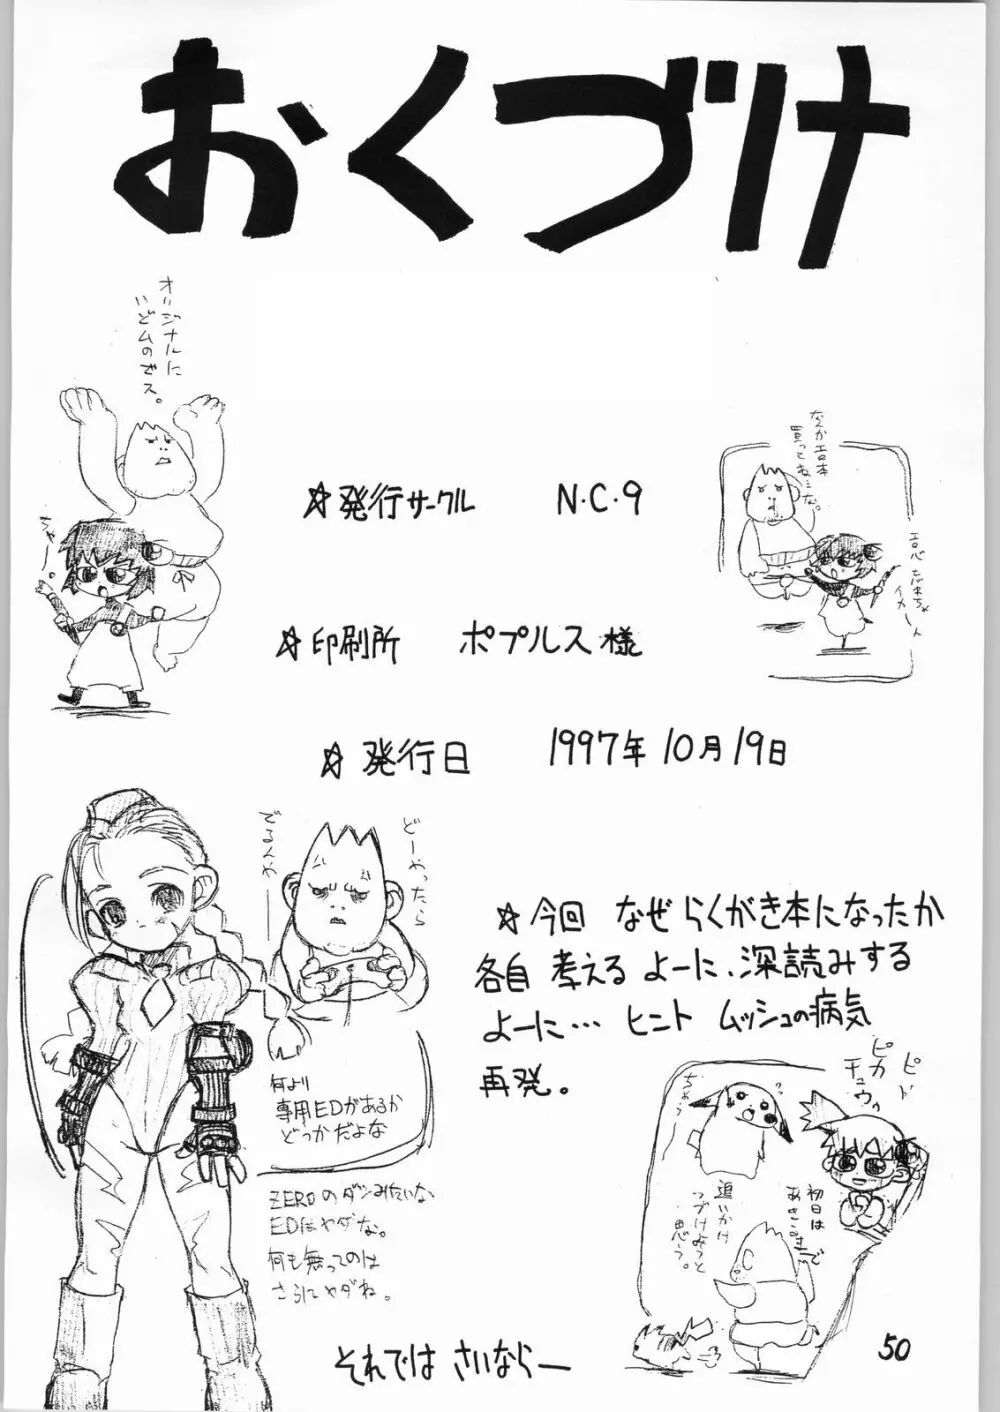 おくづけ
オリジナルに
いどムのでス。
ちゃー
なんかエロ本
買ってねーな。
☆発行サークル N・C・9
☆印刷所 ポプルス様
☆発行日 1997年10月19日
どーやったら
でるんや
何より
専用EDがあるか
どっかだよな
ZEROのダンみたいな
EDはヤダな。
何も無ってのは
さらにヤダね。
☆今回 なぜ らくがき本になったか
各自 考える よーに、深読みする
よーに… ヒント ムッシュの病気
再発。
ピカ
チュウ
ちゃー
初日は
追いかけ
つづけようと
思う。
C
それでは さいなら―
50